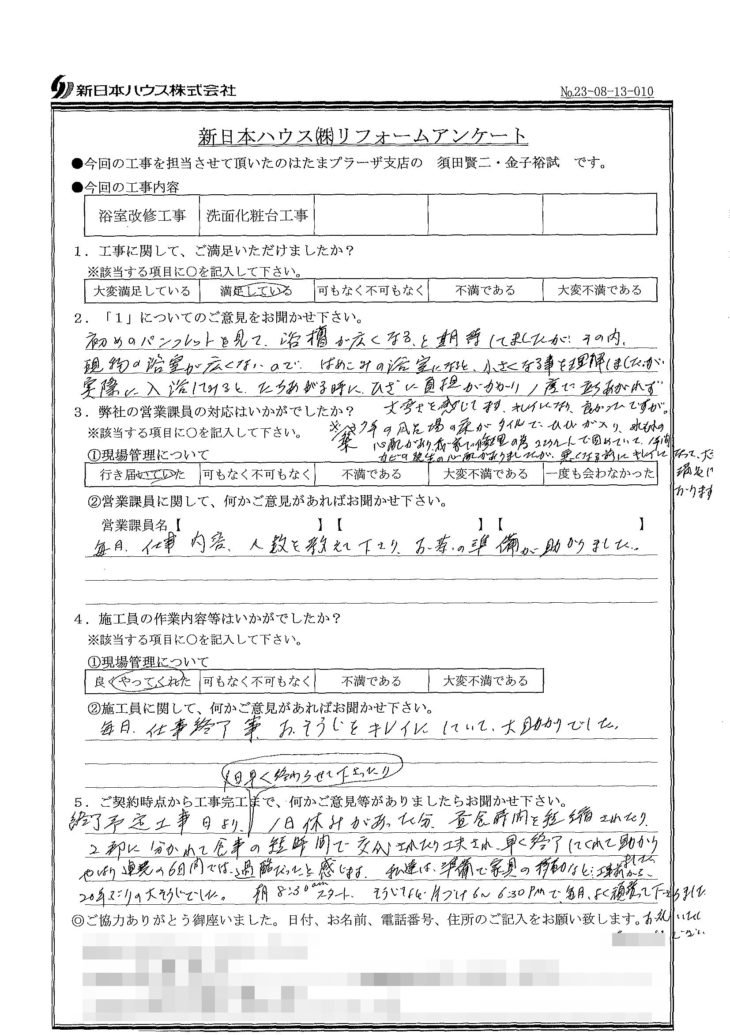 新日本ハウス株式会社
№23-08-13-010
新日本ハウス㈱リフォームアンケート
●今回の工事を担当させて頂いたのはたまプラーザ支店の 須田賢二・金子裕試 です。
●今回の工事内容
浴室改修工事 洗面化粧台工事
1．工事に関して、ご満足いただけましたか？
※該当する項目に○を記入して下さい。
大変満足している 満足している 可もなく不可もなく 不満である 大変不満である
2．「1」についてのご意見をお聞かせ下さい。
初めのパンフレットを見て、浴槽が広くなる、と期待してましたが、その内、
現物の浴室が広くないので、はめこみの浴室になると、小さくなる事を理解しましたが
実際に入浴してみると、たちあがる時に、ひざに負担がかかり1度で立ちあがれず
大変さを感じてます、キレイになり、良かったですが。
3．弊社の営業課員の対応はいかがでしたか？
※該当する項目に○を記入して下さい。
年の風呂場の床がタイルで、ひびが入り、水もれの
心配があり我家で修理の為コンクリートで固めていて、
カビの発生の心配がありましたが、悪くなる前にキレイに
なって、大
満足に
かります
①現場管理について
行き届いていた 可もなく不可もなく 不満である 大変不満である 一度も会わなかった
②営業課員に関して、何かご意見があればお聞かせ下さい。
営業課員名【 】【 】【 】
毎日、仕事内容、人数を教えて下さり、お茶の準備が助かりました。
4．施工員の作業内容等はいかがでしたか？
※該当する項目に○を記入して下さい。
①現場管理について
良くやってくれた 可もなく不可もなく 不満である 大変不満である
②施工員に関して、何かご意見があればお聞かせ下さい。
毎日、仕事終了事、おそうじをキレイにしていて、大助かりでした。
1日早く終わらせて下さったり
5．ご契約時点から工事完工まで、何かご意見等がありましたらお聞かせ下さい。
終了予定工事日より、1日休みがあった分、昼食時間を短縮されたり、
2部に分かれて食事の短時間で交代されたり工夫され、早く終了してくれて助かり
ました
やはり連続の6日間では、過酷だったと感じます。私達は、準備で家具の移動など
20年ぶりの大そうじでした。 朝8:30amスタート、そうじなど片づけ6〜6:30PMで毎日、よく頑張って下さりました
◎ご協力ありがとう御座いました。日付、お名前、電話番号、住所のご記入をお願い致します。